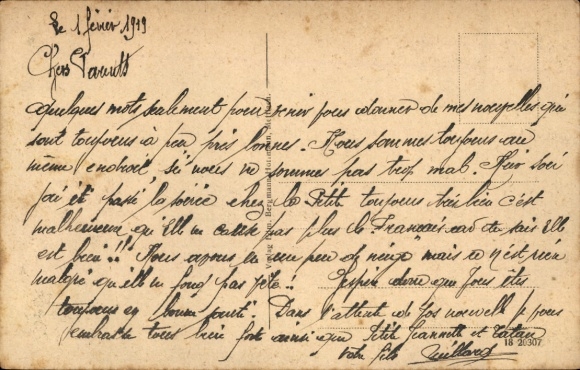 Le 1 février 1919
Chers Parents
Quelques mots seulement pour venir vous donner de mes nouvelles qui
sont toujours à peu près bonnes. Nous sommes toujours au
même endroit, ici nous ne sommes pas trop mal. Hier soir
j'ai été passé la soirée chez la Petite toujours très bien c'est
malheureux qu'elle ne cause pas plus le Français car tu sais Elle
est bien!! Nous avons eu un peu de neige mais ce n'est rien
malgré qu'elle ne fond pas vite. J'espère donc que vous êtes
toujours en bonne santé. Dans l'attente de vos nouvelles je vous
embrasse tous bien fort ainsi que Petite Jeannette et Tatan
votre fils
18 20307